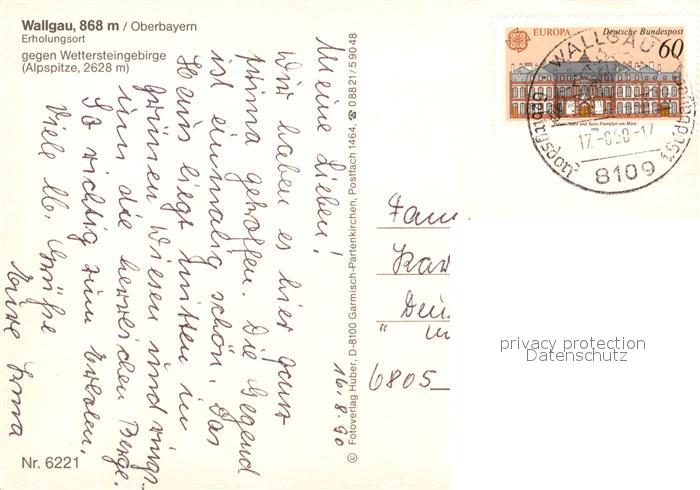 Wallgau, 868 m / Oberbayern
Erholungsort
gegen Wettersteingebirge
(Alpspitze, 2628 m)
Meine Lieben!
Wir haben es hier ganz
prima getroffen. Die Gegend
ist einmalig schön. Das
Haus liegt mitten in
grünen Wiesen und rings-
um die herrlichen Berge.
So richtig zum Erholen.
Viele lb. Grüße
Eure Irma
16.8.90
Nr. 6221
© Fotoverlag Huber, D-8100 Garmisch-Partenkirchen, Postfach 1464, ☎ 0 88 21/5 90 48
EUROPA Deutsche Bundespost
60
Thurn und Taxis Frankfurt am Main
1990
WALLGAU
17.-8.90-17
8109
Fam
Kar
Deu
6805
privacy protection
Datenschutz